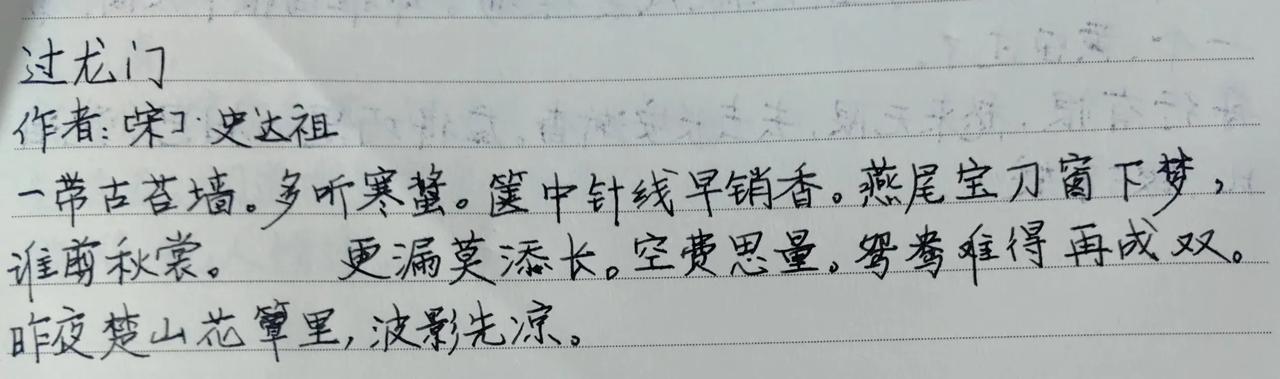 过龙门
作者:[宋]·史达祖
一带古苔墙。多听寒螀。箧中针线早销香。燕尾宝刀窗下梦,
谁剪秋裳。 更漏莫添长。空费思量。鸳鸯难得再成双。
昨夜楚山花簟里,波影先凉。